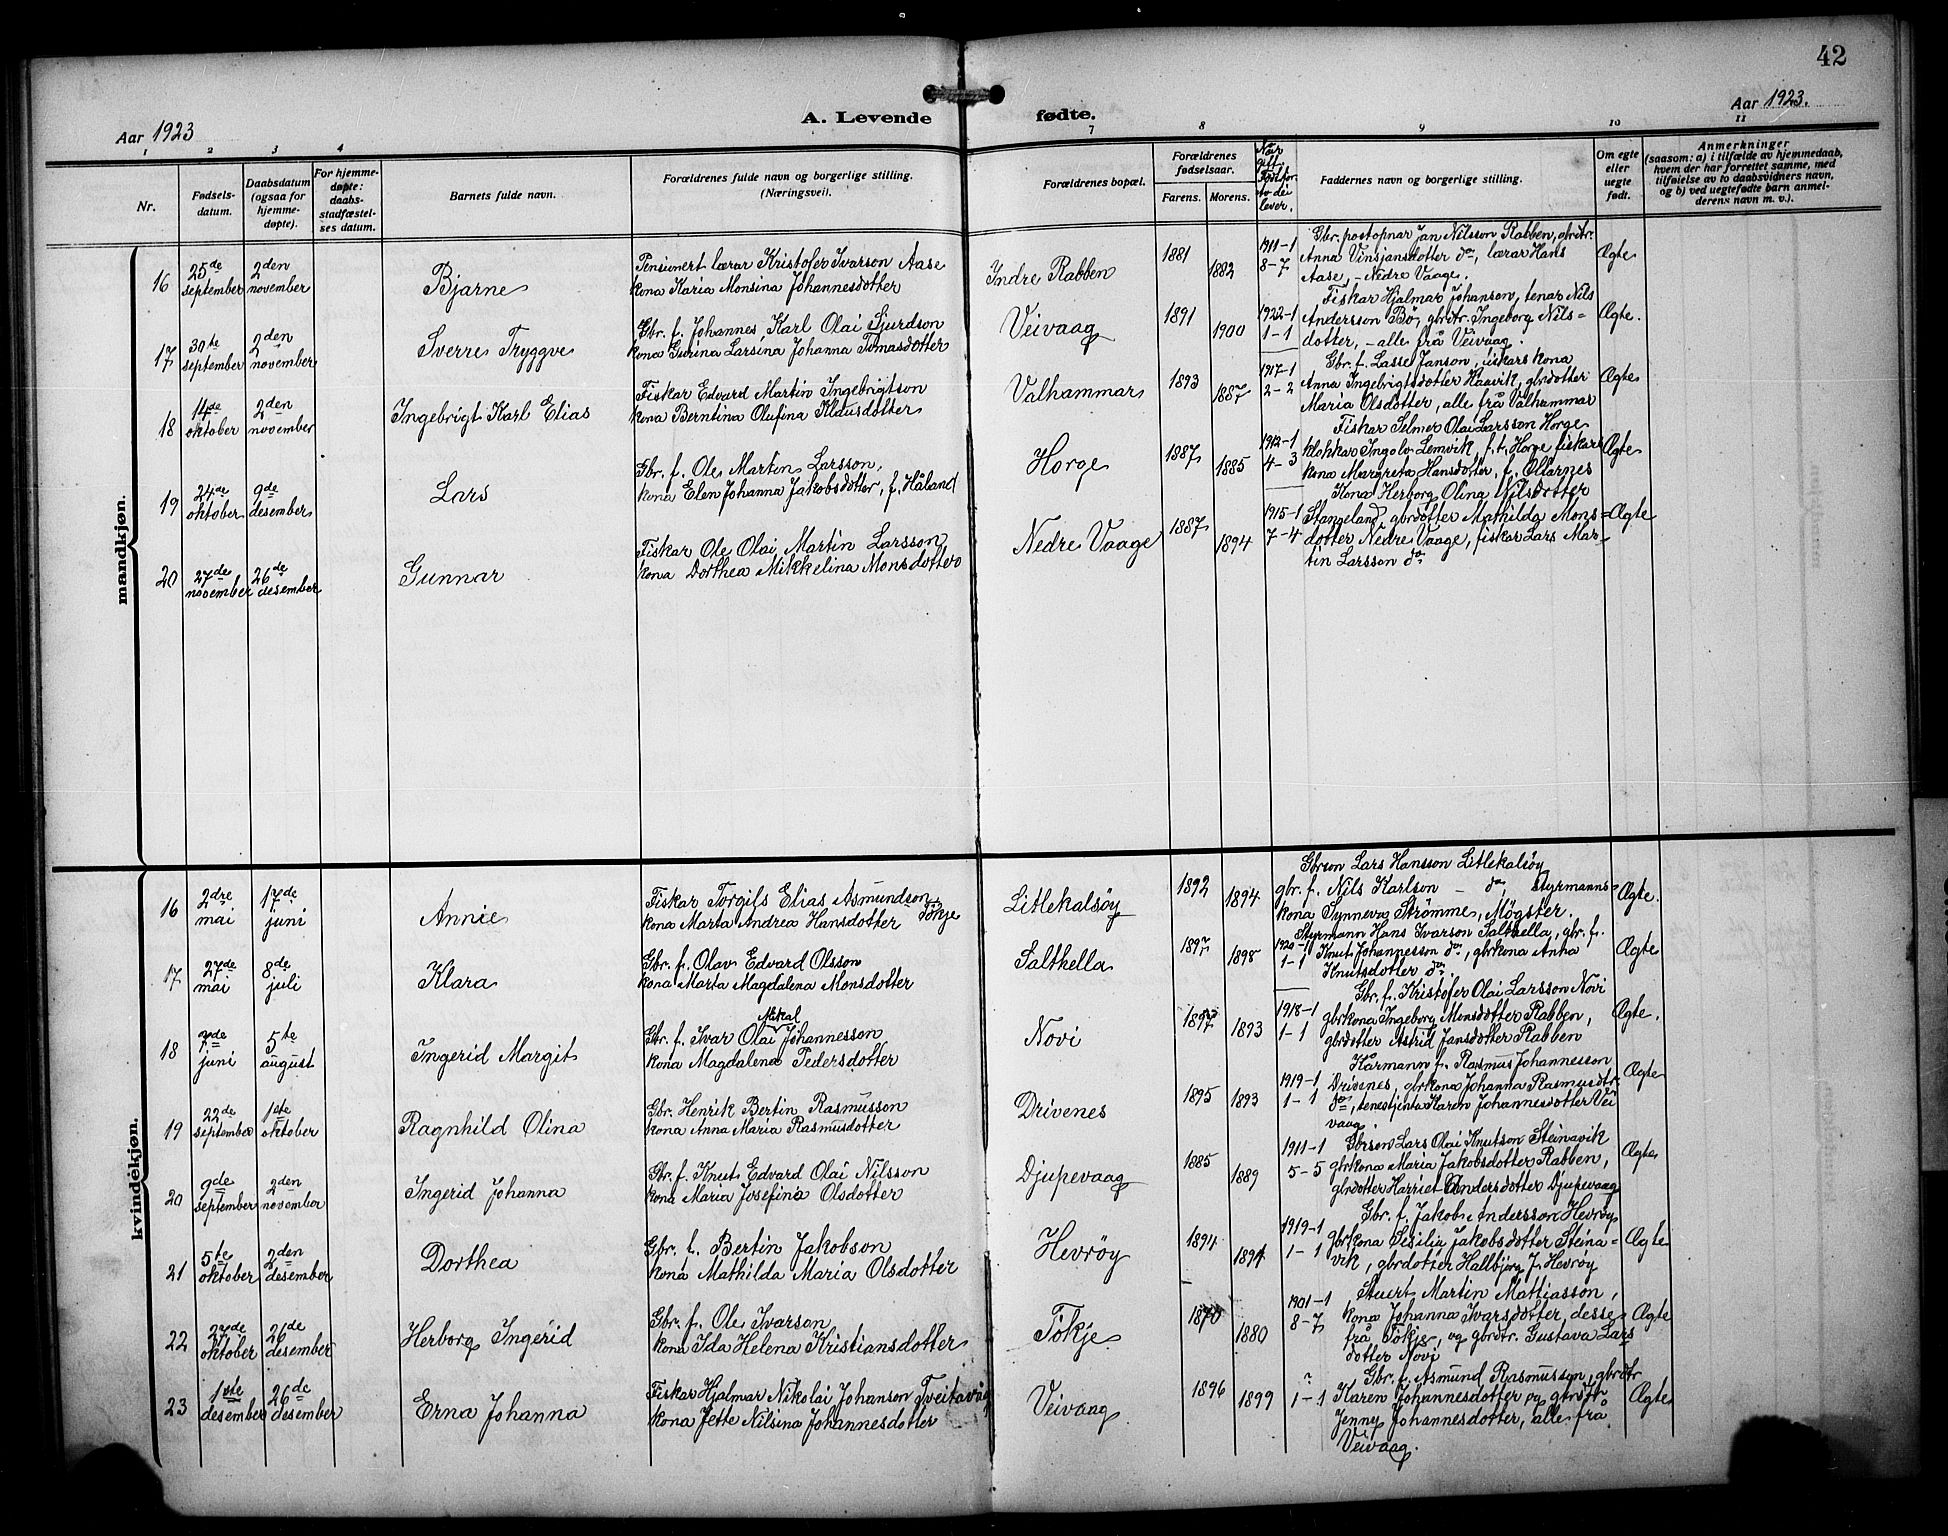 42
Aar 1923
A. Levende fødte.
Aar 1923.
1 2 3 4 7 8 9 10 11
Nr.
Fødsels-
datum.
Daabsdatum
(ogsaa for
hjemme-
døpte).
For hjemme-
døpte:
daabs-
stadfæstel-
ses datum.
Barnets fulde navn.
Forældrenes fulde navn og borgerlige stilling.
(Næringsvei).
Forældrenes bopæl.
Forældrenes
fødselsaar.
Farens. Morens.
Når
gift
lever.
Faddernes navn og borgerlige stilling.
Om egte
eller
uegte
født.
Anmerkninger
(saasom: a) i tilfælde av hjemmedaab,
hvem der har forrettet samme, med
tilføielse av to daabsvidners navn,
og b) ved uegtefødte barn anmel-
derens navn m. v.).
mandkjøn.
16
25de
september
2den
november
Bjarne
Pensionert lærar Kristofer Ivarson Aase
kona Karia Monsina Johannesdotter
Indre Rabben
1881
1882
1911-1
8-7
Gbr. postopnar Jan Nilsson Rabben, gbrdtr.
Anna Vinsjansdotter do, lærar Hans
Aase, - Nedre Vaage.
Ægte
17
30te
september
2den
november
Sverre Tryggve
Gbr. f. Johannes Karl Olai Sjurdson
kona Gurina Larsina Johanna Tomasdotter
Veivaag
1891
1900
1922-1
1-1
Fiskar Hjalmar Johanson, tenar Nils
Andersson Bø, gbrdtr. Ingeborg Nils=
dotter, - alle frå Veivaag.
Ægte.
18
14de
oktober
2den
november
Ingebrigt Karl Elias
Fiskar Edvard Martin Ingebrigtson
kona Berntina Olufina Klausdotter
Valhammar
1893
1887
1917-1
2-2
Gbr. f. Lasse Janson, fiskars kona
Anna Ingebrigtsdotter Haavik, gbrdotter
Maria Olsdotter, alle frå Valhammar
Ægte
19
24de
oktober
9de
desember
Lars
Gbr. f. Ole Martin Larsson,
kona Elen Johanna Jakobsdotter, f. Håland
Horge
1887
1885
1912-1
4-3
Fiskar Selmer Olai Larsson Horge
klokkar Ingolv Lemvik, f.t. Horge fiskar
kona Margreta Hansdotter, f. Ollarnes
Ægte
20
27de
november
26de
desember
Gunnar
Fiskar Ole Olai Martin Larsson
kona Dorthea Mikkelina Monsdotter
Nedre Vaage
1887
1894
1915-1
7-4
Kona Herborg Olina Nilsdotter
Stangeland, gbrdotter Mathilda Mons=
dotter Nedre Vaage, fiskar Lars Mar-
tin Larsson do
Ægte
kvindekjøn.
16
2dre
mai
17de
juni
Annie
Fiskar Torgils Elias Asmundson
kona Marta Andrea Hansdotter Tökje
Litlekalsöy
1892
1894
Gbrson Lars Hansson Litlekalsöy
gbr. f. Nils Karlson - do, styrmanns=
kona Synneva Strömme, Mögster.
Ægte.
17
27de
mai
8de
juli
Klara
Gbr. f. Olav Edvard Olsson
kona Marta Magdalena Monsdotter
Salthella
1897
1898
1920-1
1-1
Styrmann Hans Ivarson Salthella, gbr. f.
Knut Johannesson do, gbrkona Anna
Knutsdotter do
Ægte
18
7de
juni
5te
august
Ingerid Margit
Mikal
Gbr. f. Ivar Olai Johannesson
kona Magdalena Pedersdotter
Novi
1897
1893
1918-1
1-1
Gbr. f. Kristofer Olai Larsson Novi
gbrkona Ingeborg Monsdotter Rabben,
gbrdotter Astrid Jansdotter Rabben
Ægte.
19
22de
september
1ste
oktober
Ragnhild Olina
Gbr. Henrik Bertin Rasmusson
kona Anna Maria Rasmusdotter
Drivenes
1895
1893
1919-1
1-1
Kårmann f. Rasmus Johannesson
Drivenes, gbrkona Johanna Rasmusdtr.
do, tenestjinta Karen Johannesdotter Vei
vaag.
Ægte
20
9de
september
2den
november
Ingerid Johanna
Gbr. f. Knut Edvard Olai Nilsson
kona Maria Josefina Olsdotter
Djupevaag
1885
1889
1911-1
5-5
Gbrson Lars Olai Knutson Steinavik
gbrkona Maria Jakobsdotter Rabben,
gbrdotter Harriet Andersdotter Djupevaag
Ægte
21
5te
oktober
2den
desember
Dorthea
Gbr. f. Bertin Jakobson
kona Mathilda Maria Olsdotter
Hevröy
1894
1894
1919-1
1-1
Gbr. f. Jakob Andersson Hevröy
gbrkona Sesilia Jakobsdotter Steina-
vik, gbrdotter Hallbjörg J. Hevröy
Ægte
22
27de
oktober
26de
desember
Herborg Ingerid
Gbr. f. Ole Ivarson,
kona Ida Helena Kristiansdotter
Tökje
1870
1880
1901-1
8-7
Stuert Martin Mathiasson,
kona Johanna Ivarsdotter, desse
frå Tökje, og gbrdtr. Gustava Lars
dotter Novi
Ægte
23
1ste
desember
26de
desember
Erna Johanna
Fiskar Hjalmar Nikolai Johanson Tveitavåg
kona Jette Nilsina Johannesdotter
Veivaag
1896
1899
?
1-1
Gbr. f. Asmund Rasmusson, gbrdtr
Karen Johannesdotter og gbrdtr
Jenny Johannesdotter, alle frå
Veivaag.
Ægte